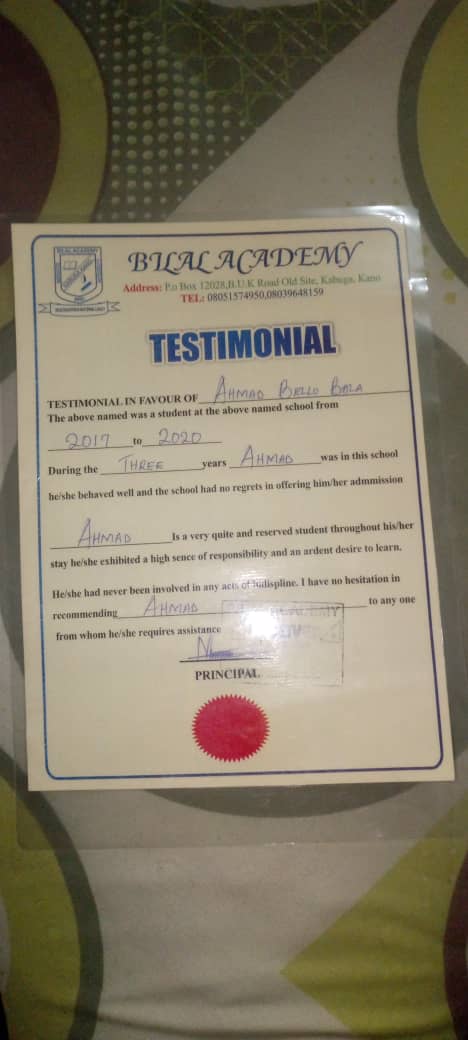 BILAL ACADEMY
BILAL ACADEMY
Address: P.o Box 12028,B.U.K Road Old Site, Kabuga, Kano
TEL: 08051574950,08039648159
TESTIMONIAL
TESTIMONIAL IN FAVOUR OF AHMAD BELLO BALA
The above named was a student at the above named school from
2017 to 2020
During the THREE years AHMAD was in this school
he/she behaved well and the school had no regrets in offering him/her admmission
AHMAD Is a very quite and reserved student throughout his/her
stay he/she exhibited a high sence of responsibility and an ardent desire to learn.
He/she had never been involved in any acts of indispline. I have no hesitation in
recommending AHMAD to any one
from whom he/she requires assistance
PRINCIPAL